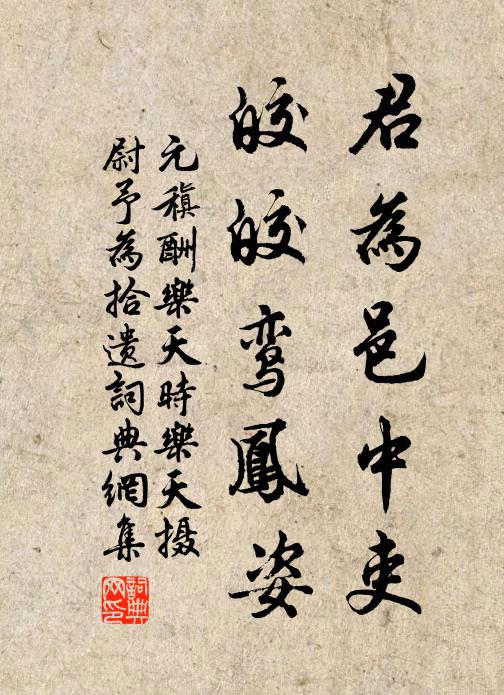 君為邑中吏
皎皎鸾鳳姿
元稹酬樂天時樂天摄
尉予為拾遺詞典網集
詞典网印